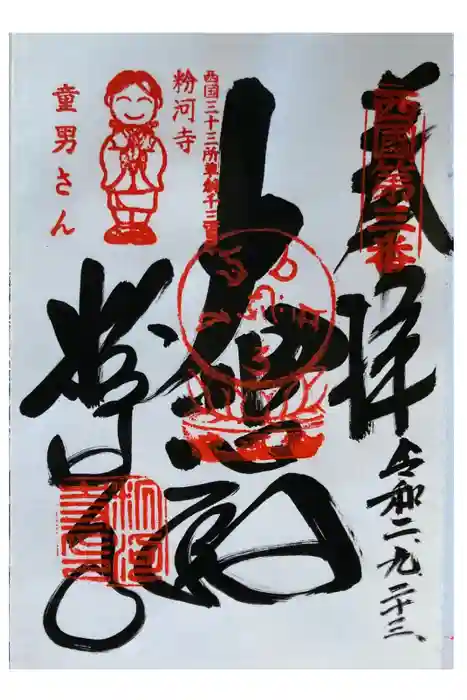 奉拝
西國第三番
令和二、九、二十三、
西国三十三所草創千三百年
大悲殿
粉河寺
粉河寺
童男さん
粉河寺